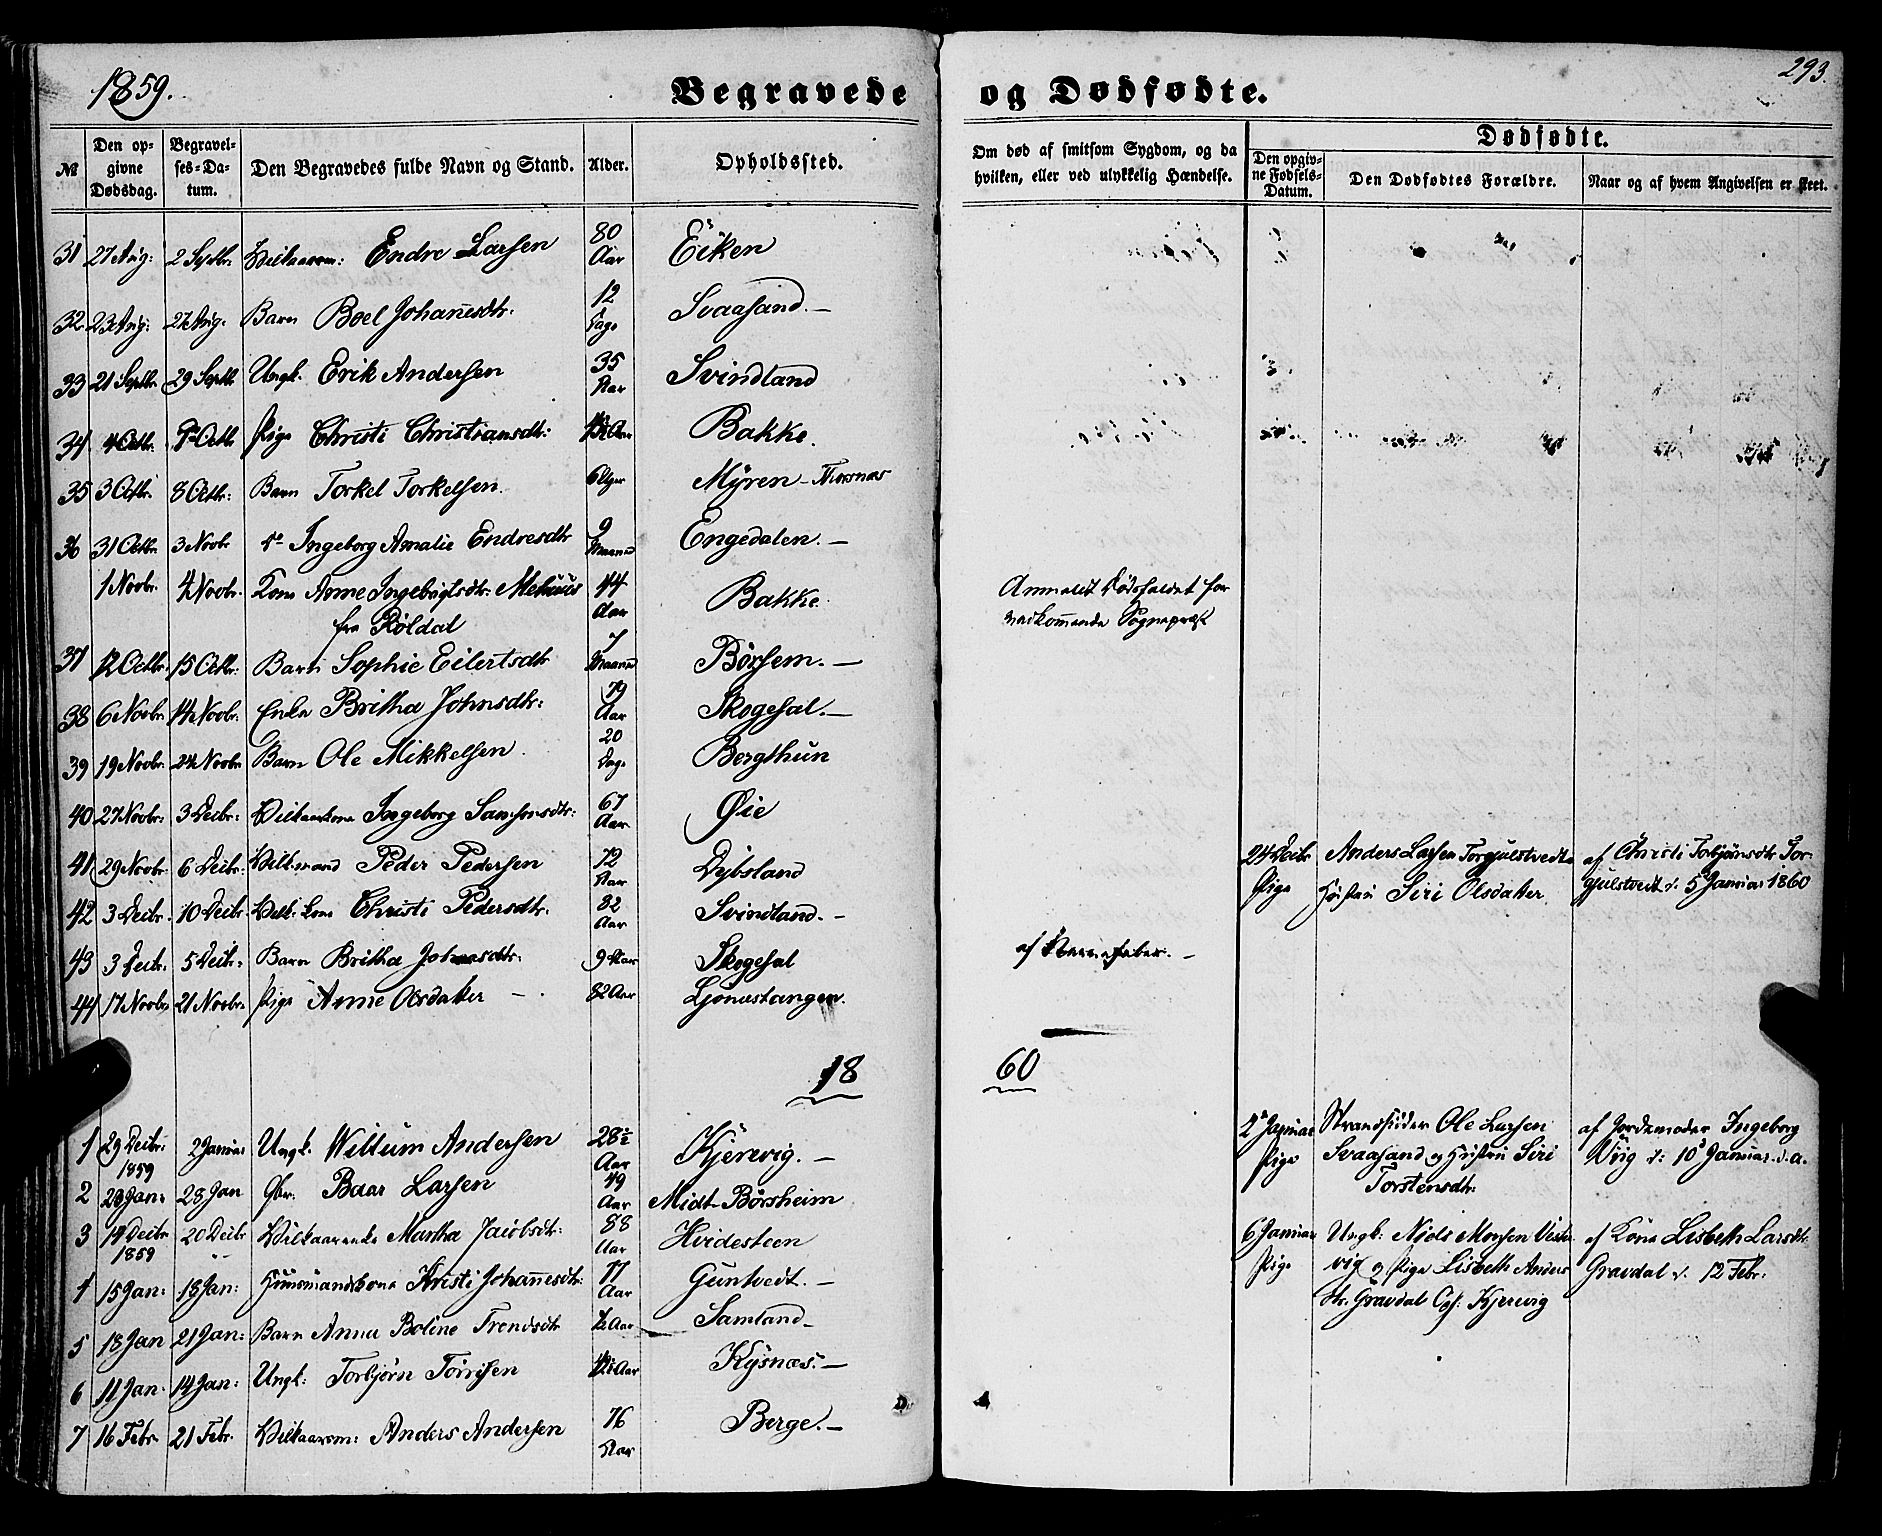 1859.
Begravede og Dødfødte.
293.
№
Den opgivne Dødsdag.
Begravelses-Datum.
Den Begravedes fulde Navn og Stand.
Alder.
Opholdssted.
Om død af smitsom Sygdom, og da hvilken, eller ved ulykkelig Hændelse.
Dødfødte.
Den opgivne Fødsels-Datum.
Den Dødfødtes Forældre.
Naar og af hvem Angivelsen er skeet.
31 27 Aug: 2 Septbr: Vilkaarsm: Endre Larsen 80 Aar Eiken
32 23 Aug: 27 Aug. Barn Boel Johannesdtr. 12 Dage Svaasand.—
33 21 Septbr 29 Septbr Ungk. Erik Andersen 35 Aar Svindland
34 4 Octbr. Octbr Pige Christi Christiansdtr: Aar Bakke.
35 3 Octbr. 8 Octbr: Barn Torkel Torkelsen. 6 Uger Mÿren - Torsnæs
36 31 Octbr 3 Novbr do Ingeborg Amalie Endresdtr 9 Maaned Engedalen.—
1 Novbr. 4 Novbr. Kone Anne Ingebrigtsdtr: Mehuus 44 Aar Bakke.
fra Röldal
Anmeldt Dødsfaldet for
vedkommende Sognepræst
37 12 Octbr. 15 Octbr: Barn Sophie Eilertsdtr 7 Maaned Börsem.—
38 6 Novbr. 14 Novbr: Enke Britha Johnsdtr: 79 Aar Skogesal.—
39 19 Novbr. 24 Novbr Barn Ole Mikkelsen. 20 Dage Bergthun
40 27 Novbr: 3 Decbr: Vilkaarskone Ingeborg Samsonsdtr: 67 Aar Øie
41 29 Novbr. 6 Decbr: Vilksmand Peder Pedersen 72 Aar Dybsland
24 Decbr Pige
Anders Larsen Torgjulstvedt
Hustru Siri Olsdatter
af Christi Torbjørnsdtr Tor-
gjulstvedt d. 5 Januar 1860
42 3 Decbr. 10 Decbr. Vilk. kone Christi Pedersdtr. 82 Aar Svindland.—
43 3 Decbr. 5 Decbr: Barn Britha Johnsdtr. 9 Aar Skogesal
af Nervefeber.—
44 17 Novbr 21 Novbr: Pige Anne Olsdatter — 82 Aar Ljonestangen.
18 60
1 29 Decbr: 1859 2 Januar Ungk. Willum Andersen 28½ Aar Kjerevig.—
2 Januar Pige
Strandsidder Ole Larsen
Svaasand og Hustru Siri
Torstensdtr:
af Jordemoder Ingeborg
Vüig d: 10 Januar d.a.
2 23 Jan: 28 Jan Gbr. Baar Larsen 49 Aar Midt-Börsheim
3 14 Decbr 1859 20 Decbr Vilkaarenke Martha Jacobsdtr: 88 Aar Hvidesteen
6 Januar Pige
Ungk: Niels Monsen
vig og Pige Lisbeth Anders
dtr. Gravdal Opf: Kjerevig
af Kone Lisbeth Larsdtr
Gravdal d. 12 Febr.
4 15 Jan: 18 Jan: Huusmandskone Kristi Johannesdtr: 77 Aar Guntvedt.—
5 18 Jan 21 Jan: Barn Anna Boline Trondsdtr ½ Aar Samland—
6 11 Jan. 14 Jan: Ungk. Torbjörn Torrisen Aar Kysnæs.—
7 16 Febr 21 Febr. Vilkaarsm: Anders Andersen 76 Aar Berge.—